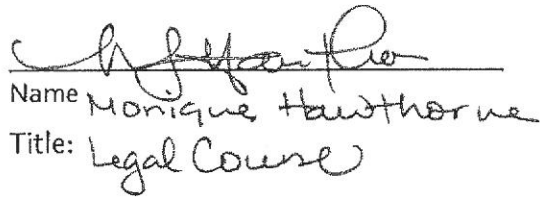 Name Monique Hawthorne
Title: Legal Counsel